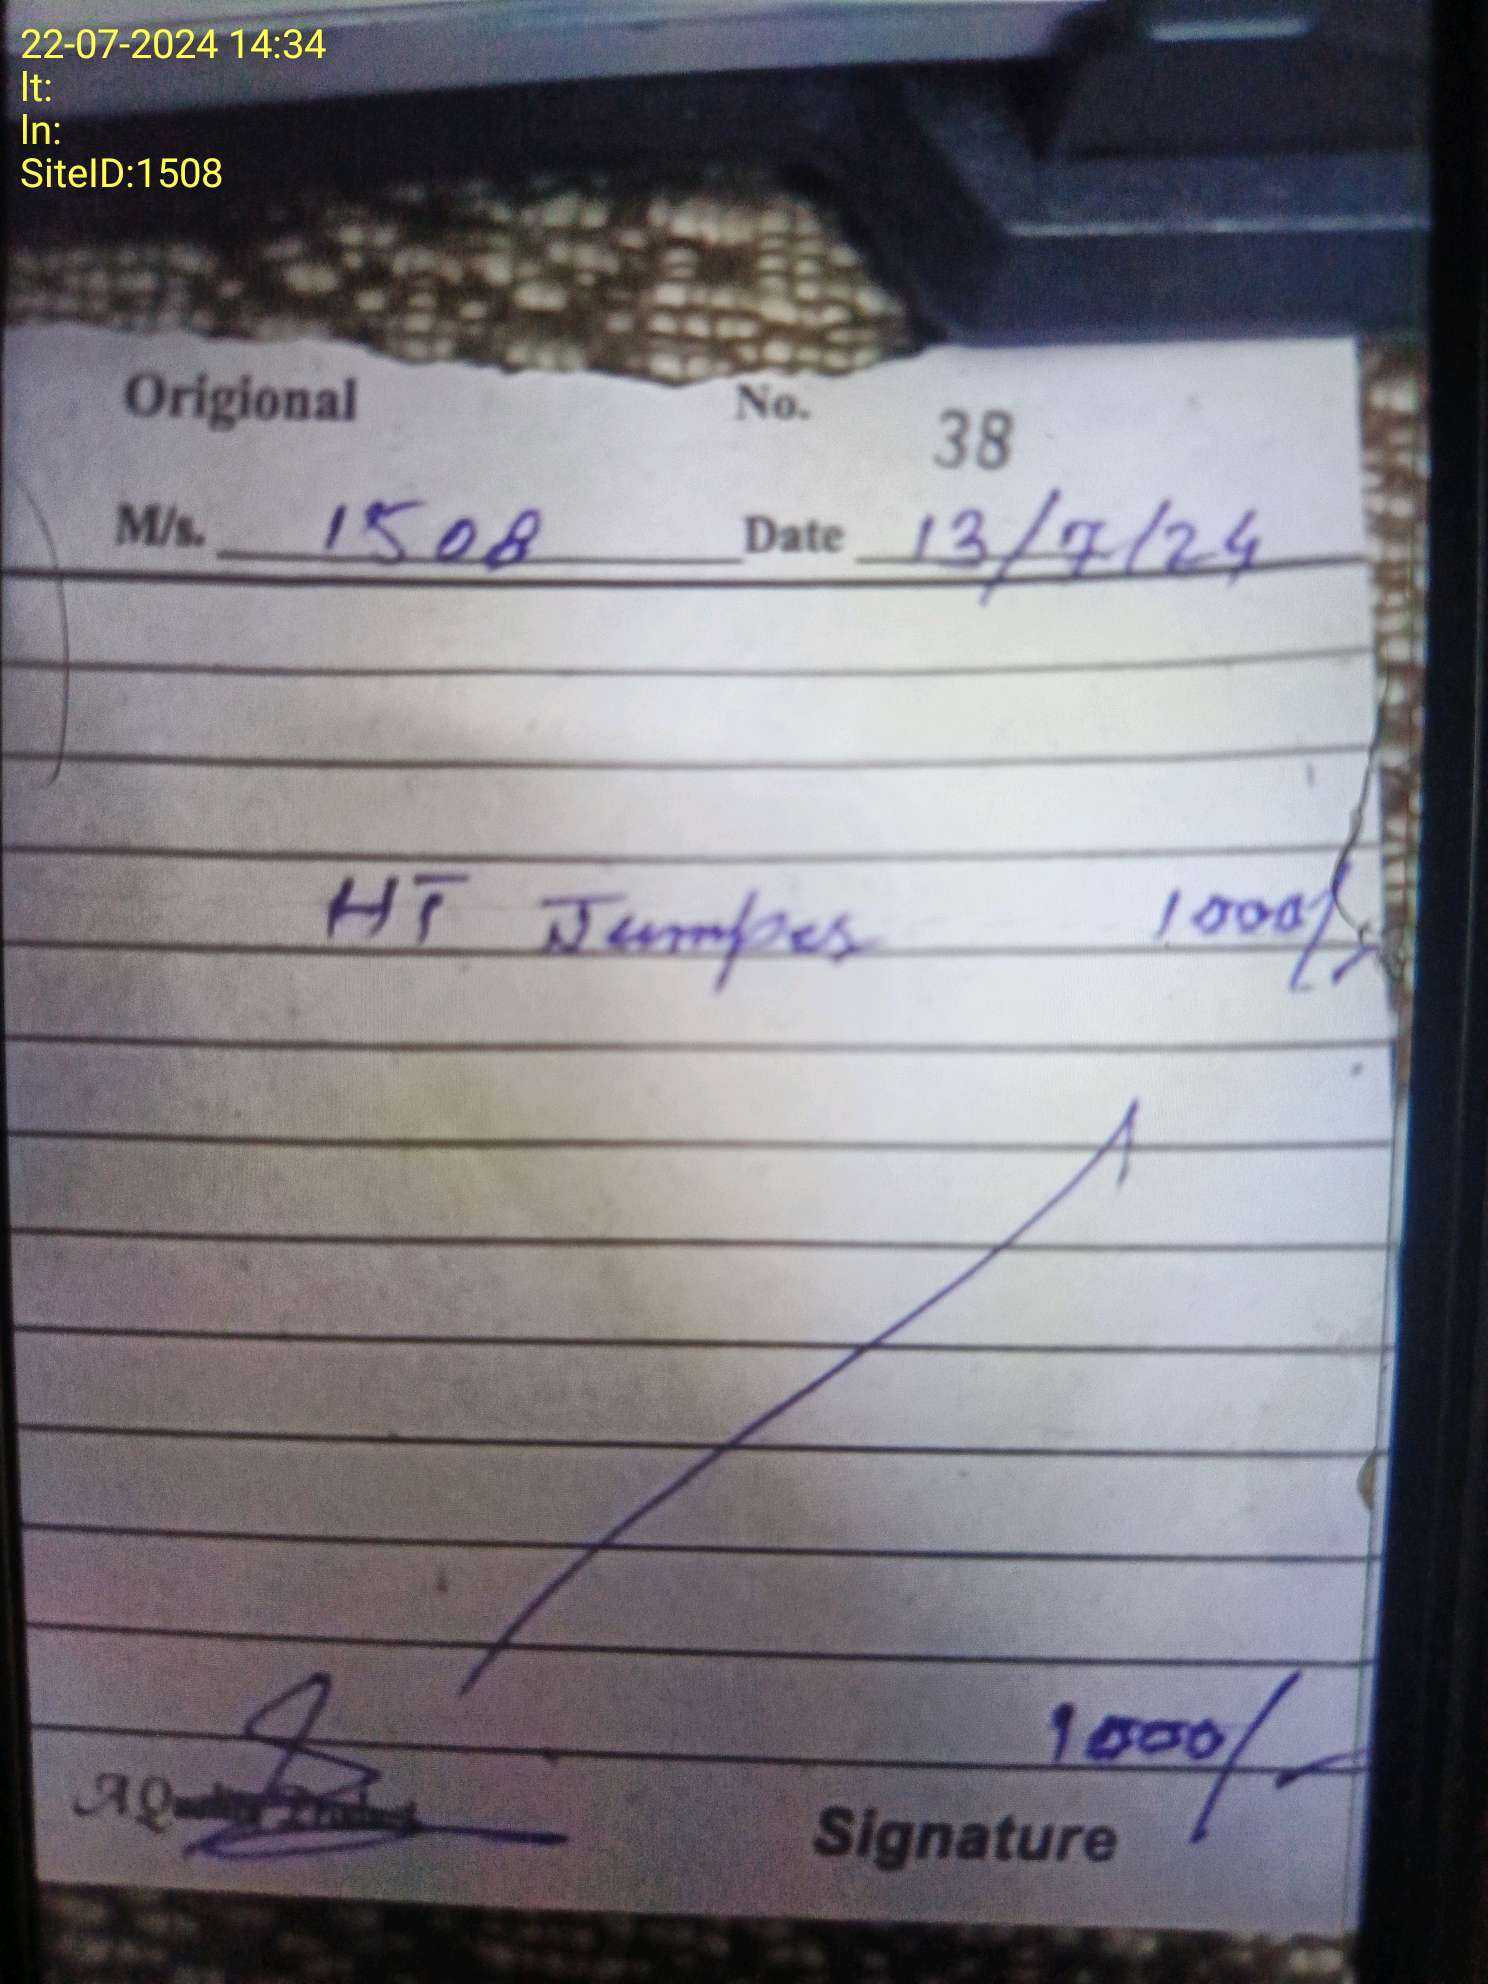 22-07-2024 14:34
lt:
ln:
SiteID:1508
Origional No. 38
M/s. 1508 Date 13/7/24
HT Jumper 1000/-
1000/-
A Quality Product Signature